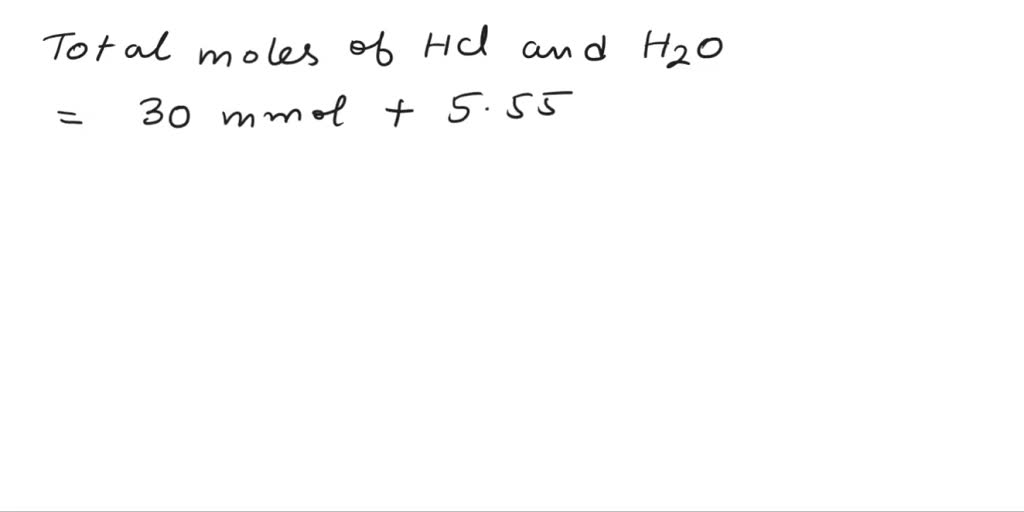 Total moles of HCl and H2O
= 30 mmol + 5.55